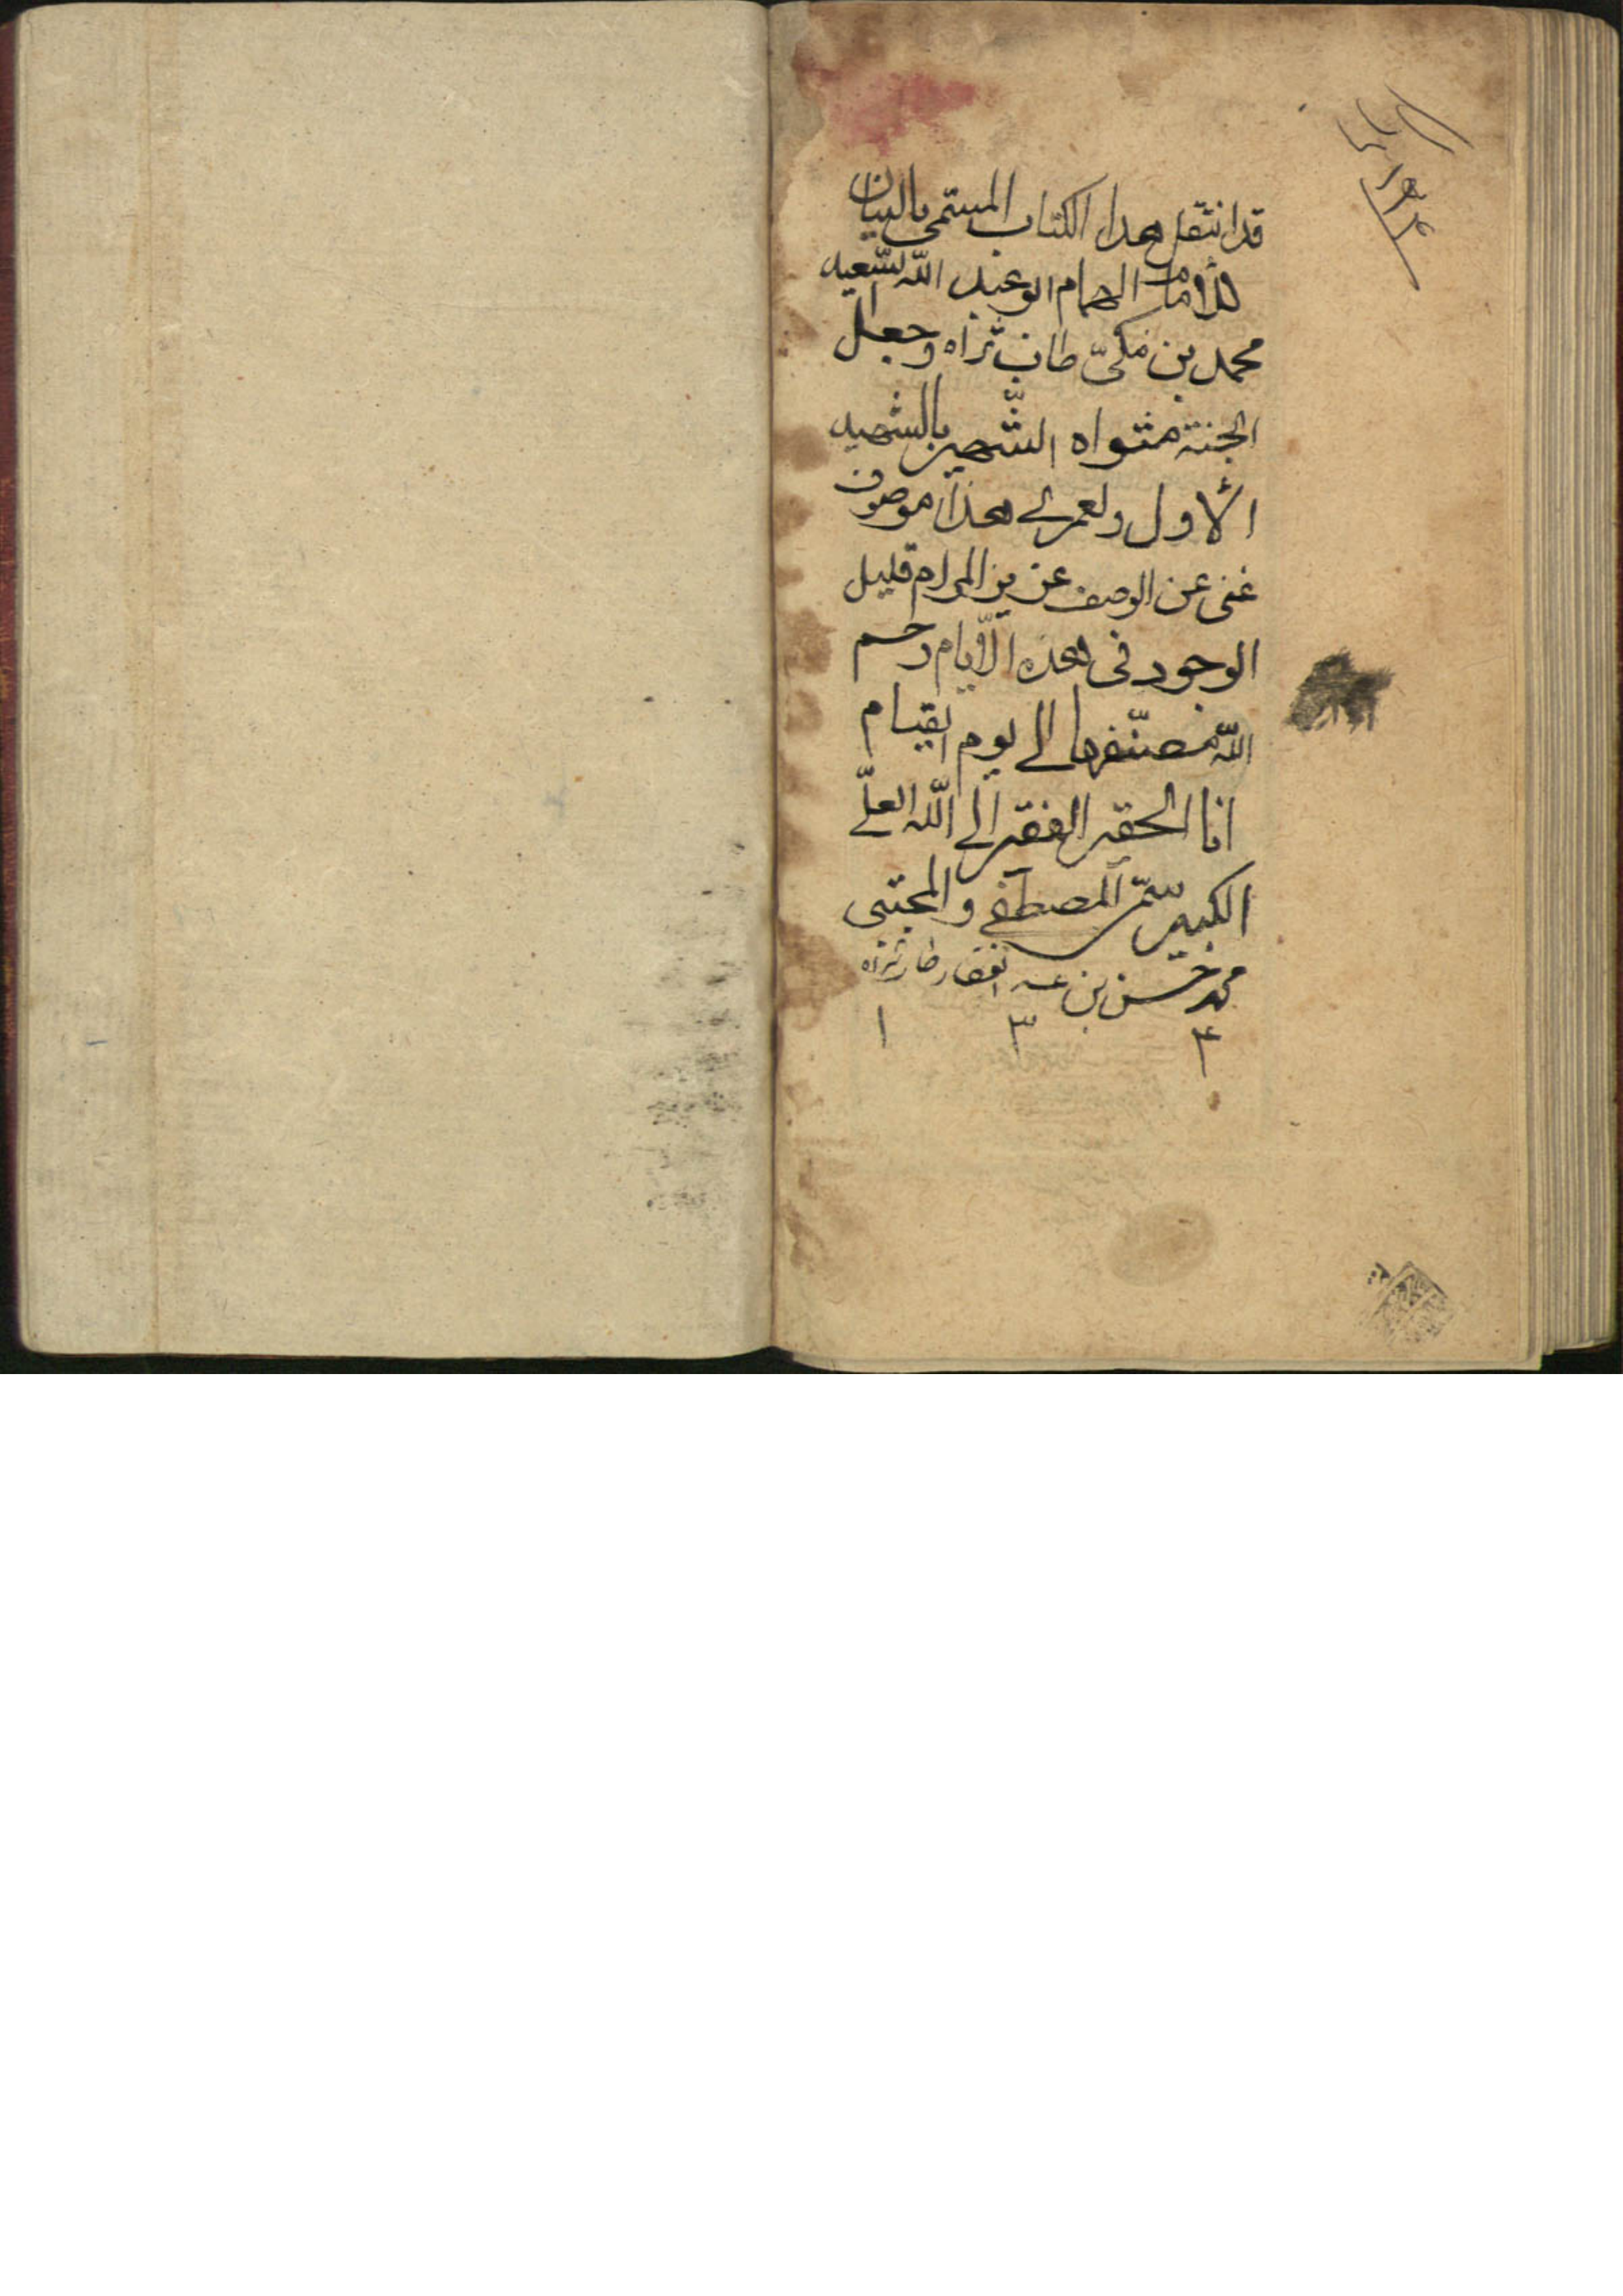 قد انتقل هذا الكتاب المسمى بالبيان
للامام الهمام ابو عبد الله السعيد
محمد بن مكىّ طاب ثراه وجعل
الجنة مثواه الشّهير بالشهيد
الاول ولعمرى هذا موصوف
غنى عن الوصف عزيز المرام قليل
الوجود فى هذه الأيام رحم
اللّه مصنّفها الى يوم القيام
انا الحقير الفقير الى اللّه العلّى
الكبير سمّى المصطفى والمجتبى
محمد حسن بن عبد الغفار طاب ثراه
١ ٣